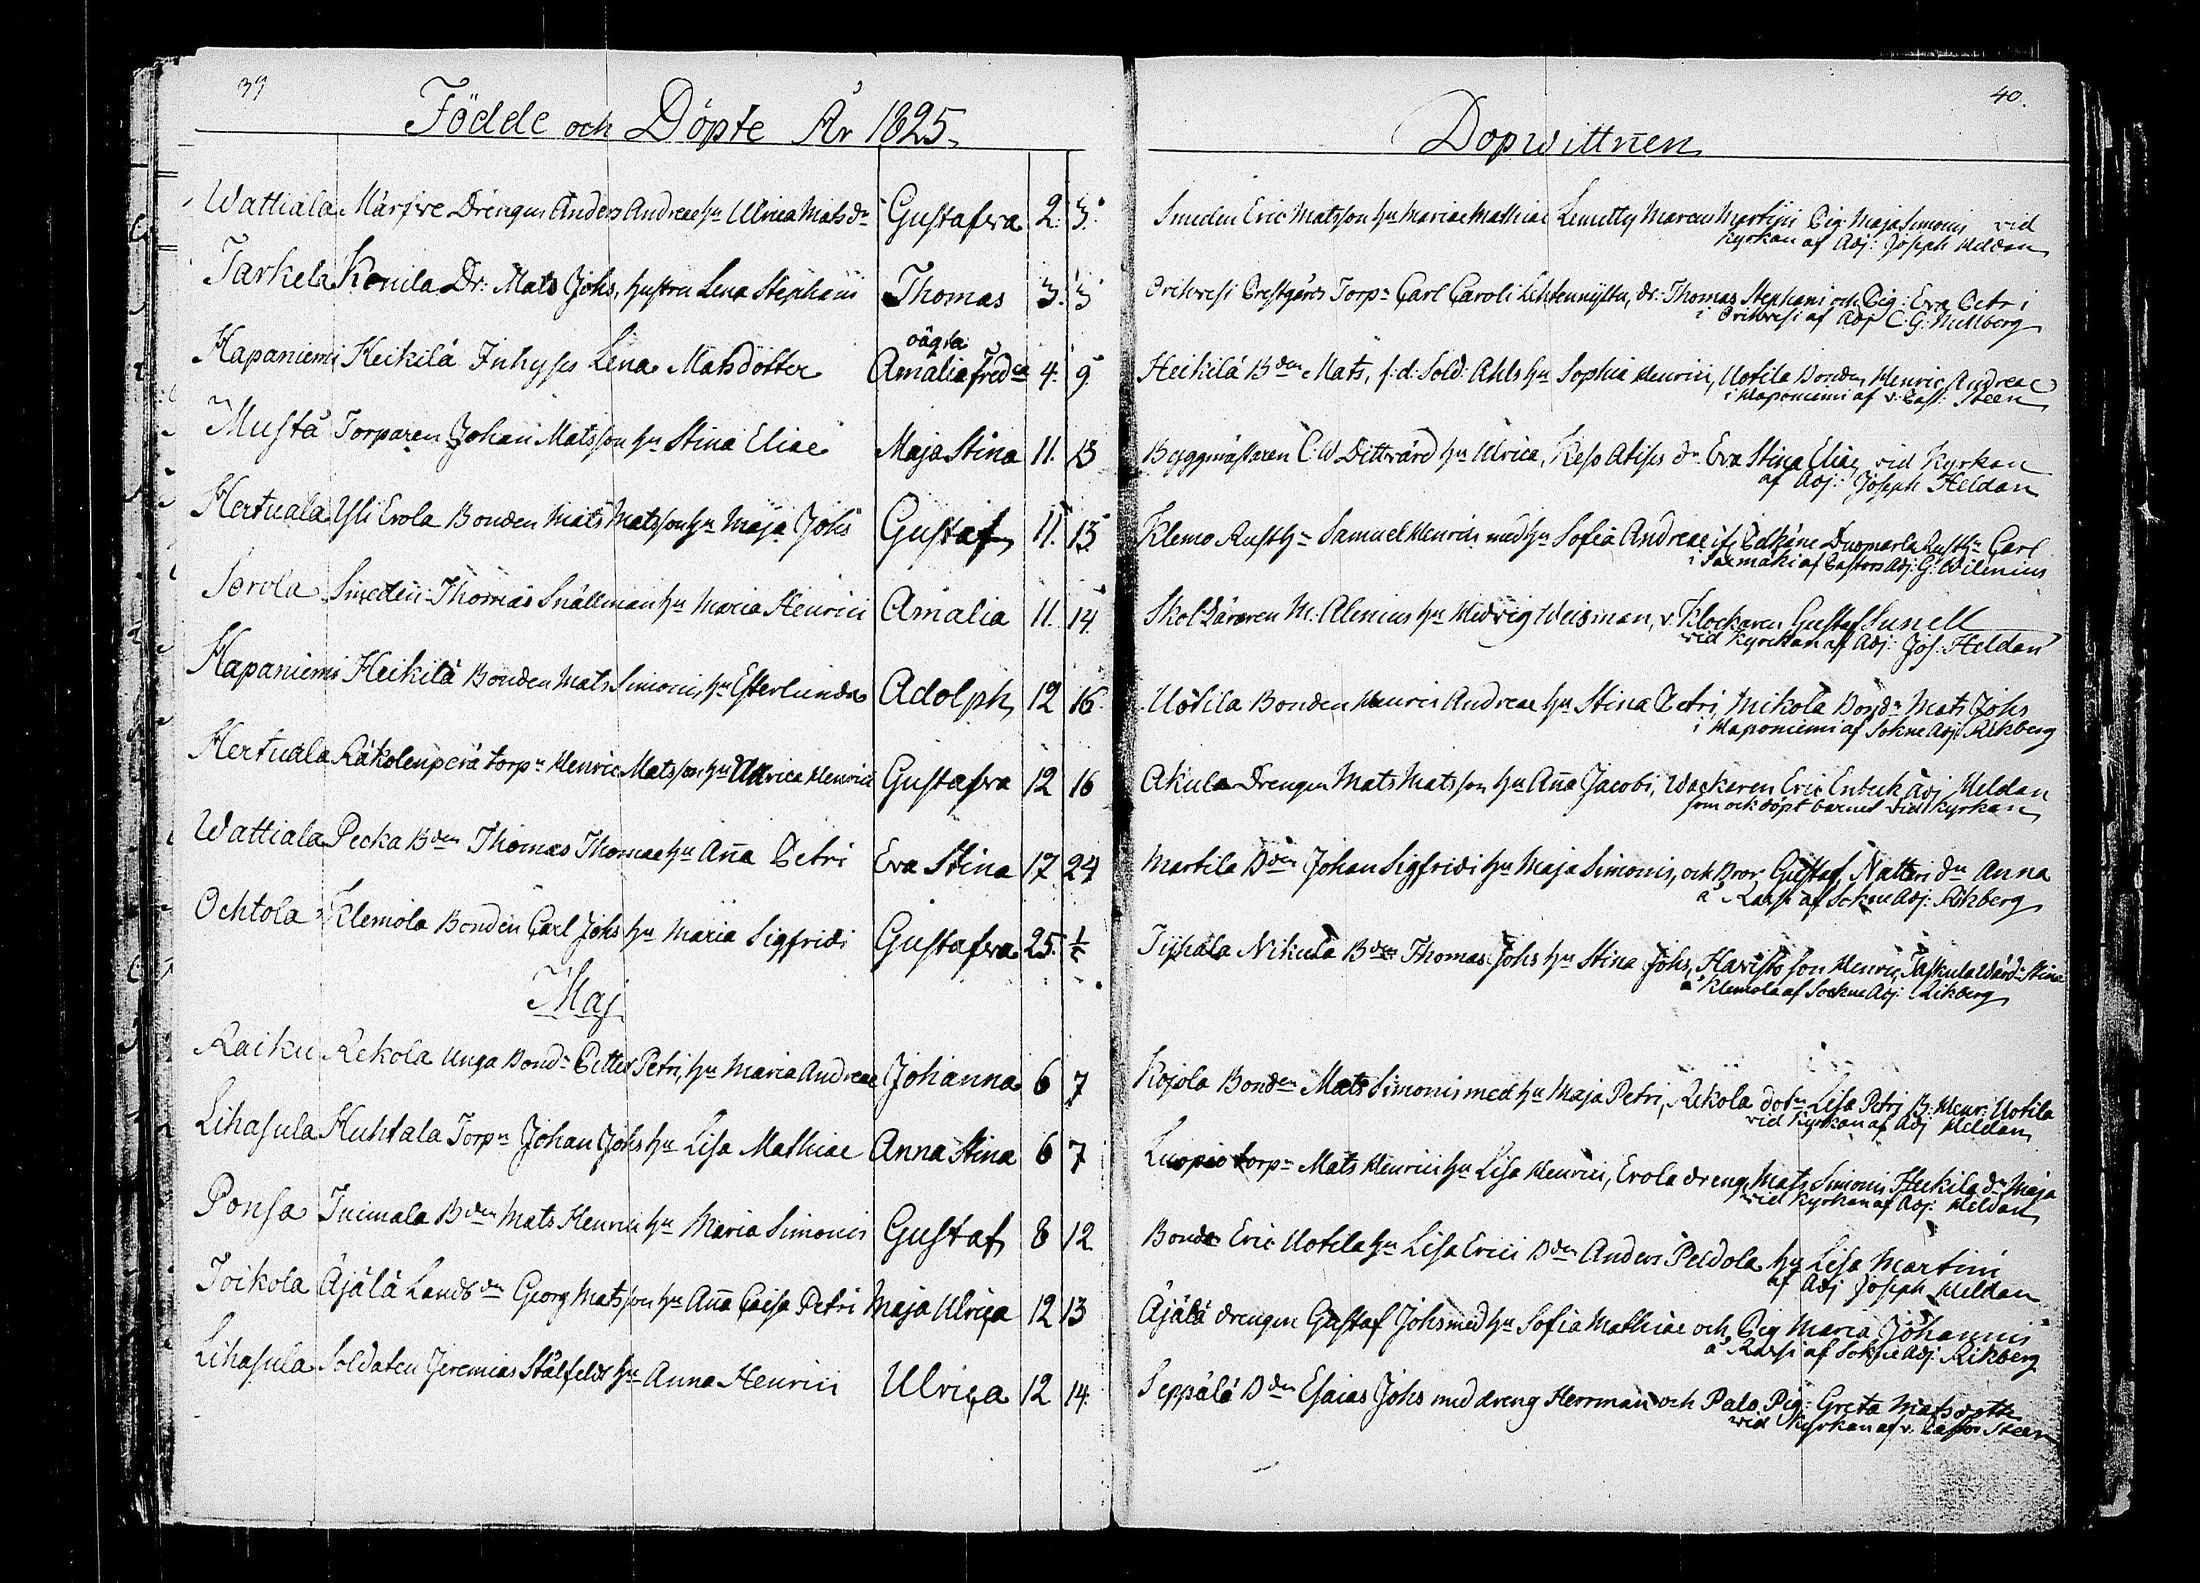 39
Födde och Döpte År 1825.
Wattiala Märfve Drengen Anders Andreae hu Ulrica Matsdr Gustafva 2. 3.
Tarkela Konila Dr: Mats Johs, hustru Lena Stephani Thomas 3. 3
oägta
Hapaniemi Heikilä Inhyses Lena Matsdotter Amalia Fredca 4. 9.
Musta Torparen Johan Matsson hu Stina Eliae Maja Stina 11. 13
Hertuala Yli Erola Bonden Mats Matsson hu Maja Johs Gustaf 11. 13.
Sorola Smeden Thomas Snällman hu Maria Henrici Amalia 11. 14.
Hapaniemi Heikilä Bonden Mats Simonis, hu Ester Adolph 12 16
Hertuala Räkolenperä torpn Henric Matsson hu Ulrica Henrici Gustafva 12 16
Wattiala Pecka Bden Thomas Thomae hu Aña Petri Eva Stina 17 24
Ochtola Klemola Bonden Carl Johs hu Maria Sigfridi Gustafva 25.
Maj
Raiku Rekola unga Bondn Petter Petri, hu Maria Andreae Johanna 6 7
Lihasula Huhtala Torpn Johan Johs hu Lisa Mathiae Anna Stina 6 7
Ponsa Tuimala Bden Mats Henrici hu Maria Simonis Gustaf 8 12
Toikola Äjälä Landbdn Georg Matsson hu Aña Caisa Petri Maja Ulrica 12 13
Lihasula Soldaten Jeremias Stålfeldt hu Anna Henrici Ulrica 12 14.
40.
Dopwittnen
Smeden Eric Matsson hu Mariae Mathiae Lemetty Marcus Martini Pig: Maja Simonis vid
kyrkan af Adj: Joseph Heldan
Orihvesi Prestgårds Torpn Carl Caroli, dr: Thomas Stephani och Pig: Eva Petri
i Orihvesi af Adj C: G:
Heikilä Bden Mats, f:d: Sold: Ahls hu Sophia Henrici, Uotila Bonden Henric Andreae
i Haponiemi af v: Past: Steen
Byggmästaren C W Dittvärd hu Ulrica, Keso dr Eva Stina Eliae vid Kyrkan
af Adj: Joseph Heldan
Klemo Rusthn Samuel Henrici med hu Sofia Andreae if Pelkäne Rusthn Carl
i Saxmäki af Pastors Adj: G: Wilenius
Skol Läraren M: Alenius hu Hedvig Weisman, v: Klockaren Gustaf Sunell
vid Kyrckan af Adj: Jos: Heldan
Uotila Bonden Henric Andreae hu Stina Petri, Mikola Bondn Mats Johs
i Haponiemi af Sokne Adj: Rikberg
Akula Drengen Mats Matsson hu Aña Jacobi, Wackaren Eric Adj Heldan
som ock döpt barnet vid Kyrkan
Martila Bden Johan Sigfridi hu Maja Simonis, och Bror Gustaf, Natteri dr Anna
å af Sokne Adj: Rikberg
Nikula Bden Thomas Johs hu Stina Johs, Haristo son Henric, Stina
å Klemola af Sockne Adj: Rikberg
Kojola Bonden Mats Simonis med hu Maja Petri, Rekola dotr Lisa Petri B: Henr: Uotila
vid Kyrkan af Adj Heldan
Luopio torpn Mats Henrici hu Lisa Henrici, Erola dreng Mats Simonis Heikilä dr Maja
vid Kyrkan af Adj: Heldan
Bonden Eric Uotila hu Lisa Erici Bden Anders Peldola hu Lisa Martini
af Adj Joseph Heldan
Äjälä drengen Gustaf Johs med hu Sofia Mathiae och Pig Maria Johannis
å af Sokne Adj: Rikberg
Seppälä Bden Esaias Johs med dreng Herrman och Palo Pig: Greta Matsdotter
vid Kyrkan af v: Pastor Steen